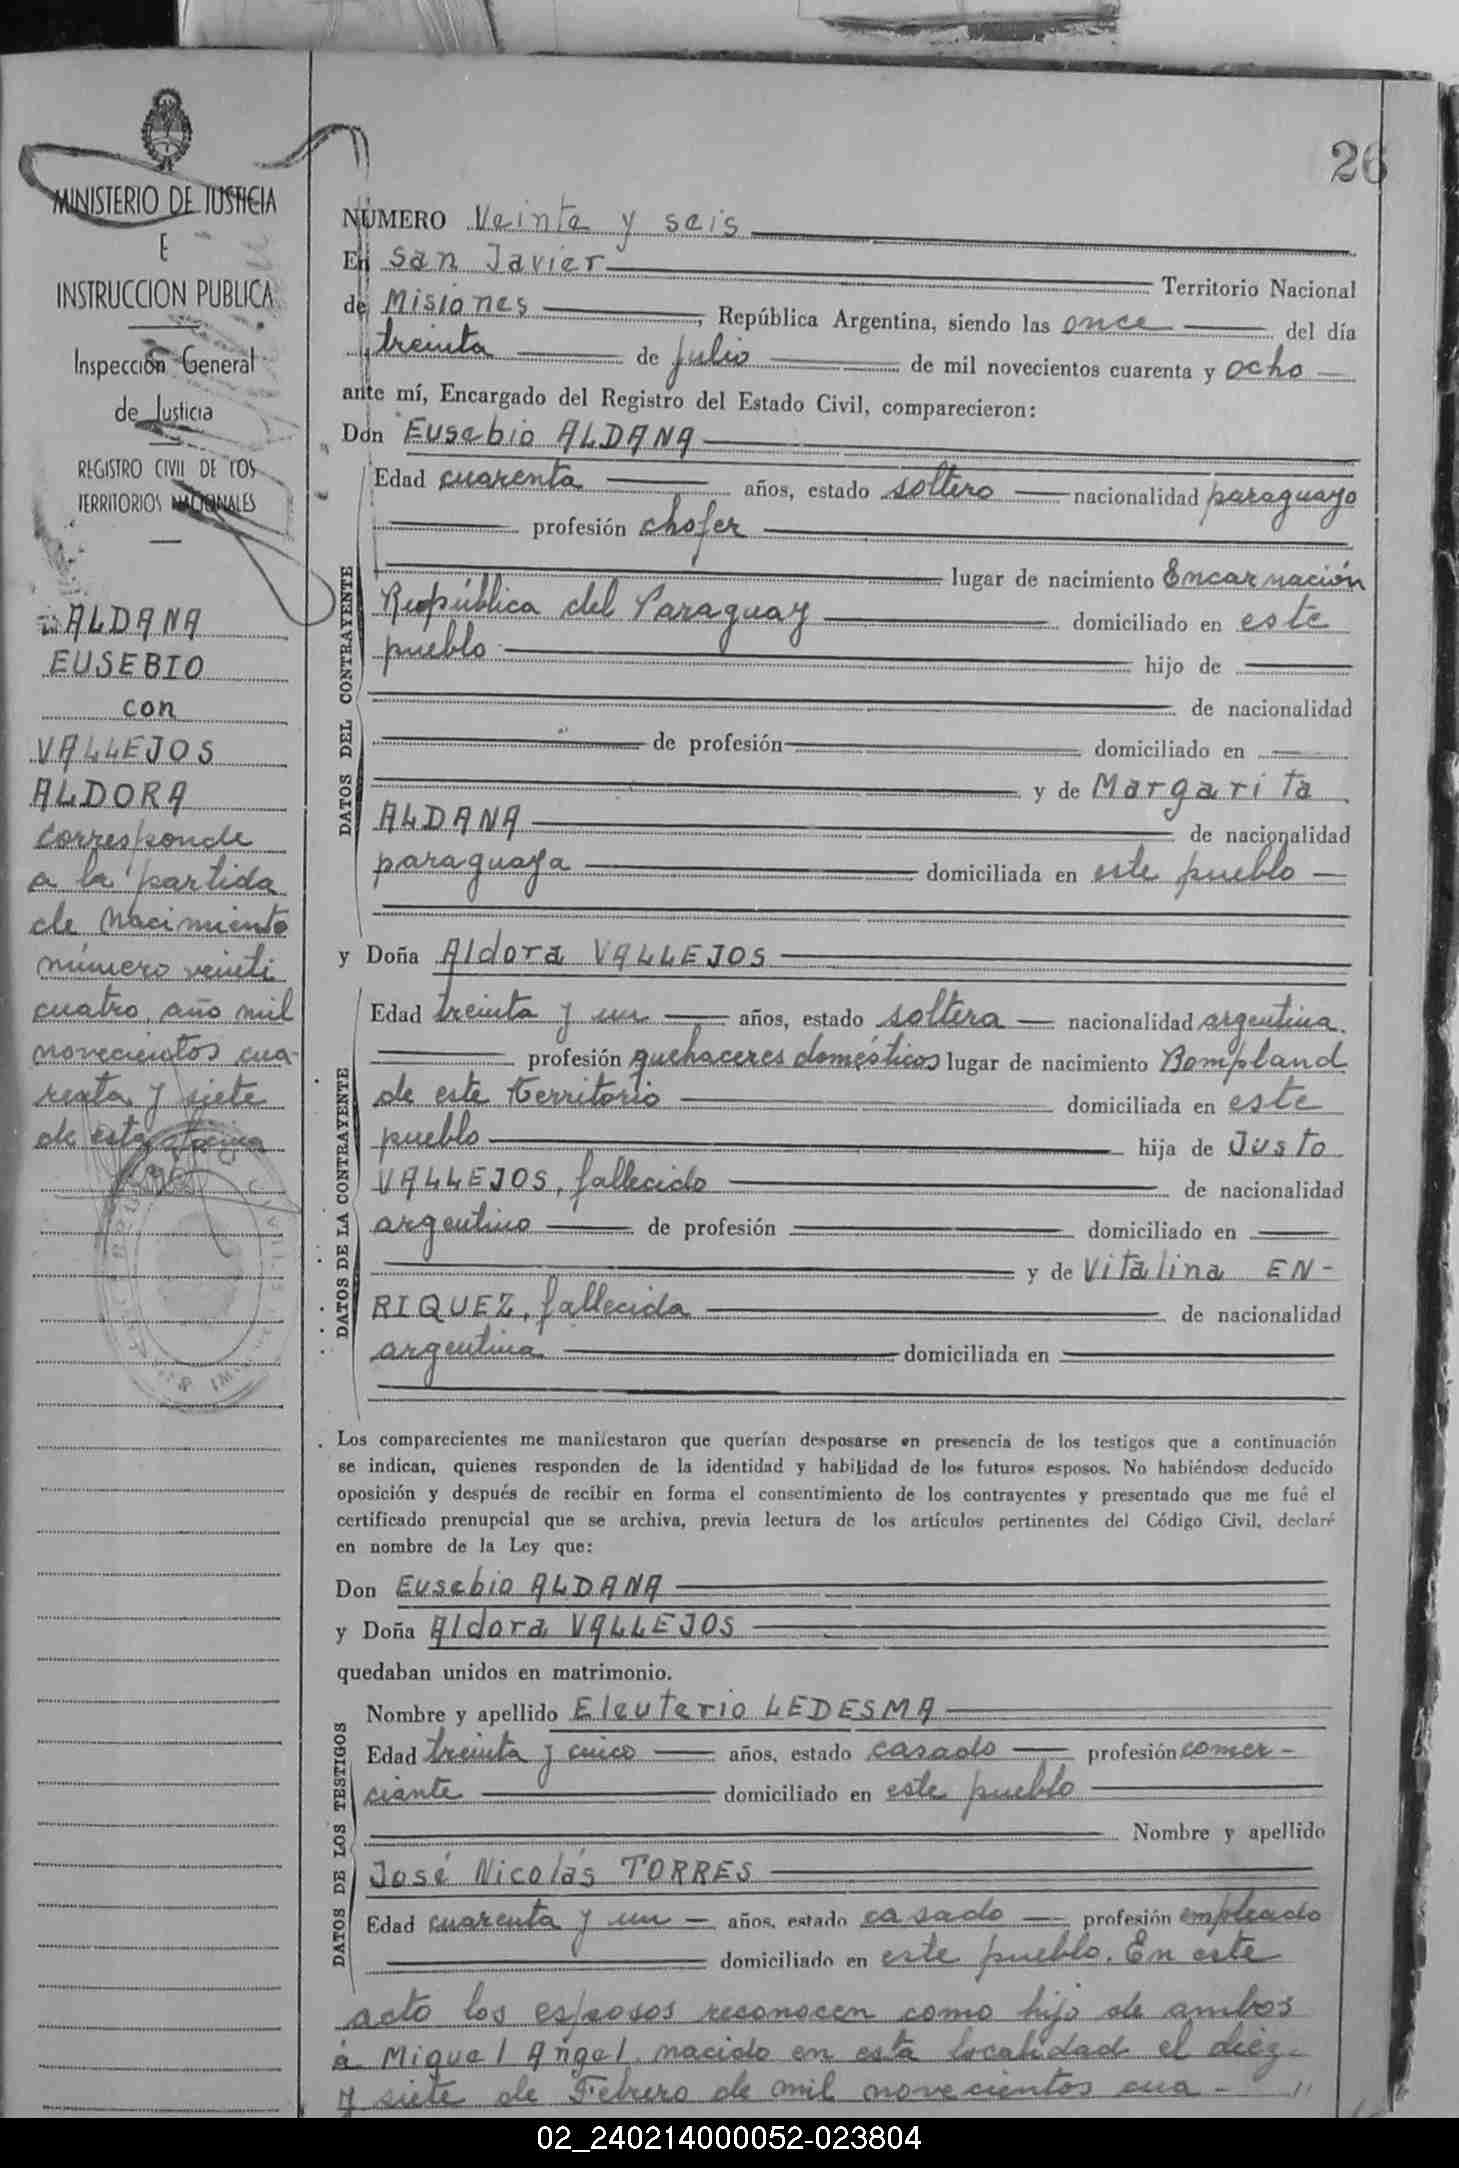 26
MINISTERIO DE JUSTICIA
E
INSTRUCCION PUBLICA
Inspección General
de Justicia
REGISTRO CIVIL DE LOS
TERRITORIOS NACIONALES
ALDANA
EUSEBIO
con
VALLEJOS
ALDORA
corresponde
a la partida
de nacimiento
número veinti
cuatro, año mil
novecientos cua-
renta y siete
de esta oficina
NÚMERO Veinte y seis
En San Javier Territorio Nacional
de Misiones, República Argentina, siendo las once del día
treinta de julio de mil novecientos cuarenta y ocho
ante mí, Encargado del Registro del Estado Civil, comparecieron:
Don Eusebio ALDANA
DATOS DEL CONTRAYENTE
Edad cuarenta años, estado soltero nacionalidad paraguayo
profesión chofer
lugar de nacimiento Encarnación
República del Paraguay domiciliado en este
pueblo hijo de
de nacionalidad
de profesión domiciliado en
y de Margarita
ALDANA de nacionalidad
paraguaya domiciliada en este pueblo
y Doña Aldora VALLEJOS
DATOS DE LA CONTRAYENTE
Edad treinta y un años, estado soltera nacionalidad argentina.
profesión quehaceres domésticos lugar de nacimiento Bompland
de este territorio domiciliada en este
pueblo hija de Justo
VALLEJOS, fallecido de nacionalidad
argentino de profesión domiciliado en
y de Vitalina EN-
RIQUEZ, fallecida de nacionalidad
argentina domiciliada en
Los comparecientes me manifestaron que querían desposarse en presencia de los testigos que a continuación
se indican, quienes responden de la identidad y habilidad de los futuros esposos. No habiéndose deducido
oposición y después de recibir en forma el consentimiento de los contrayentes y presentado que me fué el
certificado prenupcial que se archiva, previa lectura de los artículos pertinentes del Código Civil, declaré
en nombre de la Ley que:
Don Eusebio ALDANA
y Doña Aldora VALLEJOS
quedaban unidos en matrimonio.
DATOS DE LOS TESTIGOS
Nombre y apellido Eleuterio LEDESMA
Edad treinta y cinco años, estado casado profesión comer-
ciante domiciliado en este pueblo
Nombre y apellido
José Nicolás TORRES
Edad cuarenta y un años, estado casado profesión empleado
domiciliado en este pueblo. En este
acto los esposos reconocen como hijo de ambos
a Miguel Angel, nacido en esta localidad el diez
y siete de Febrero de mil novecientos cua-
02_240214000052-023804